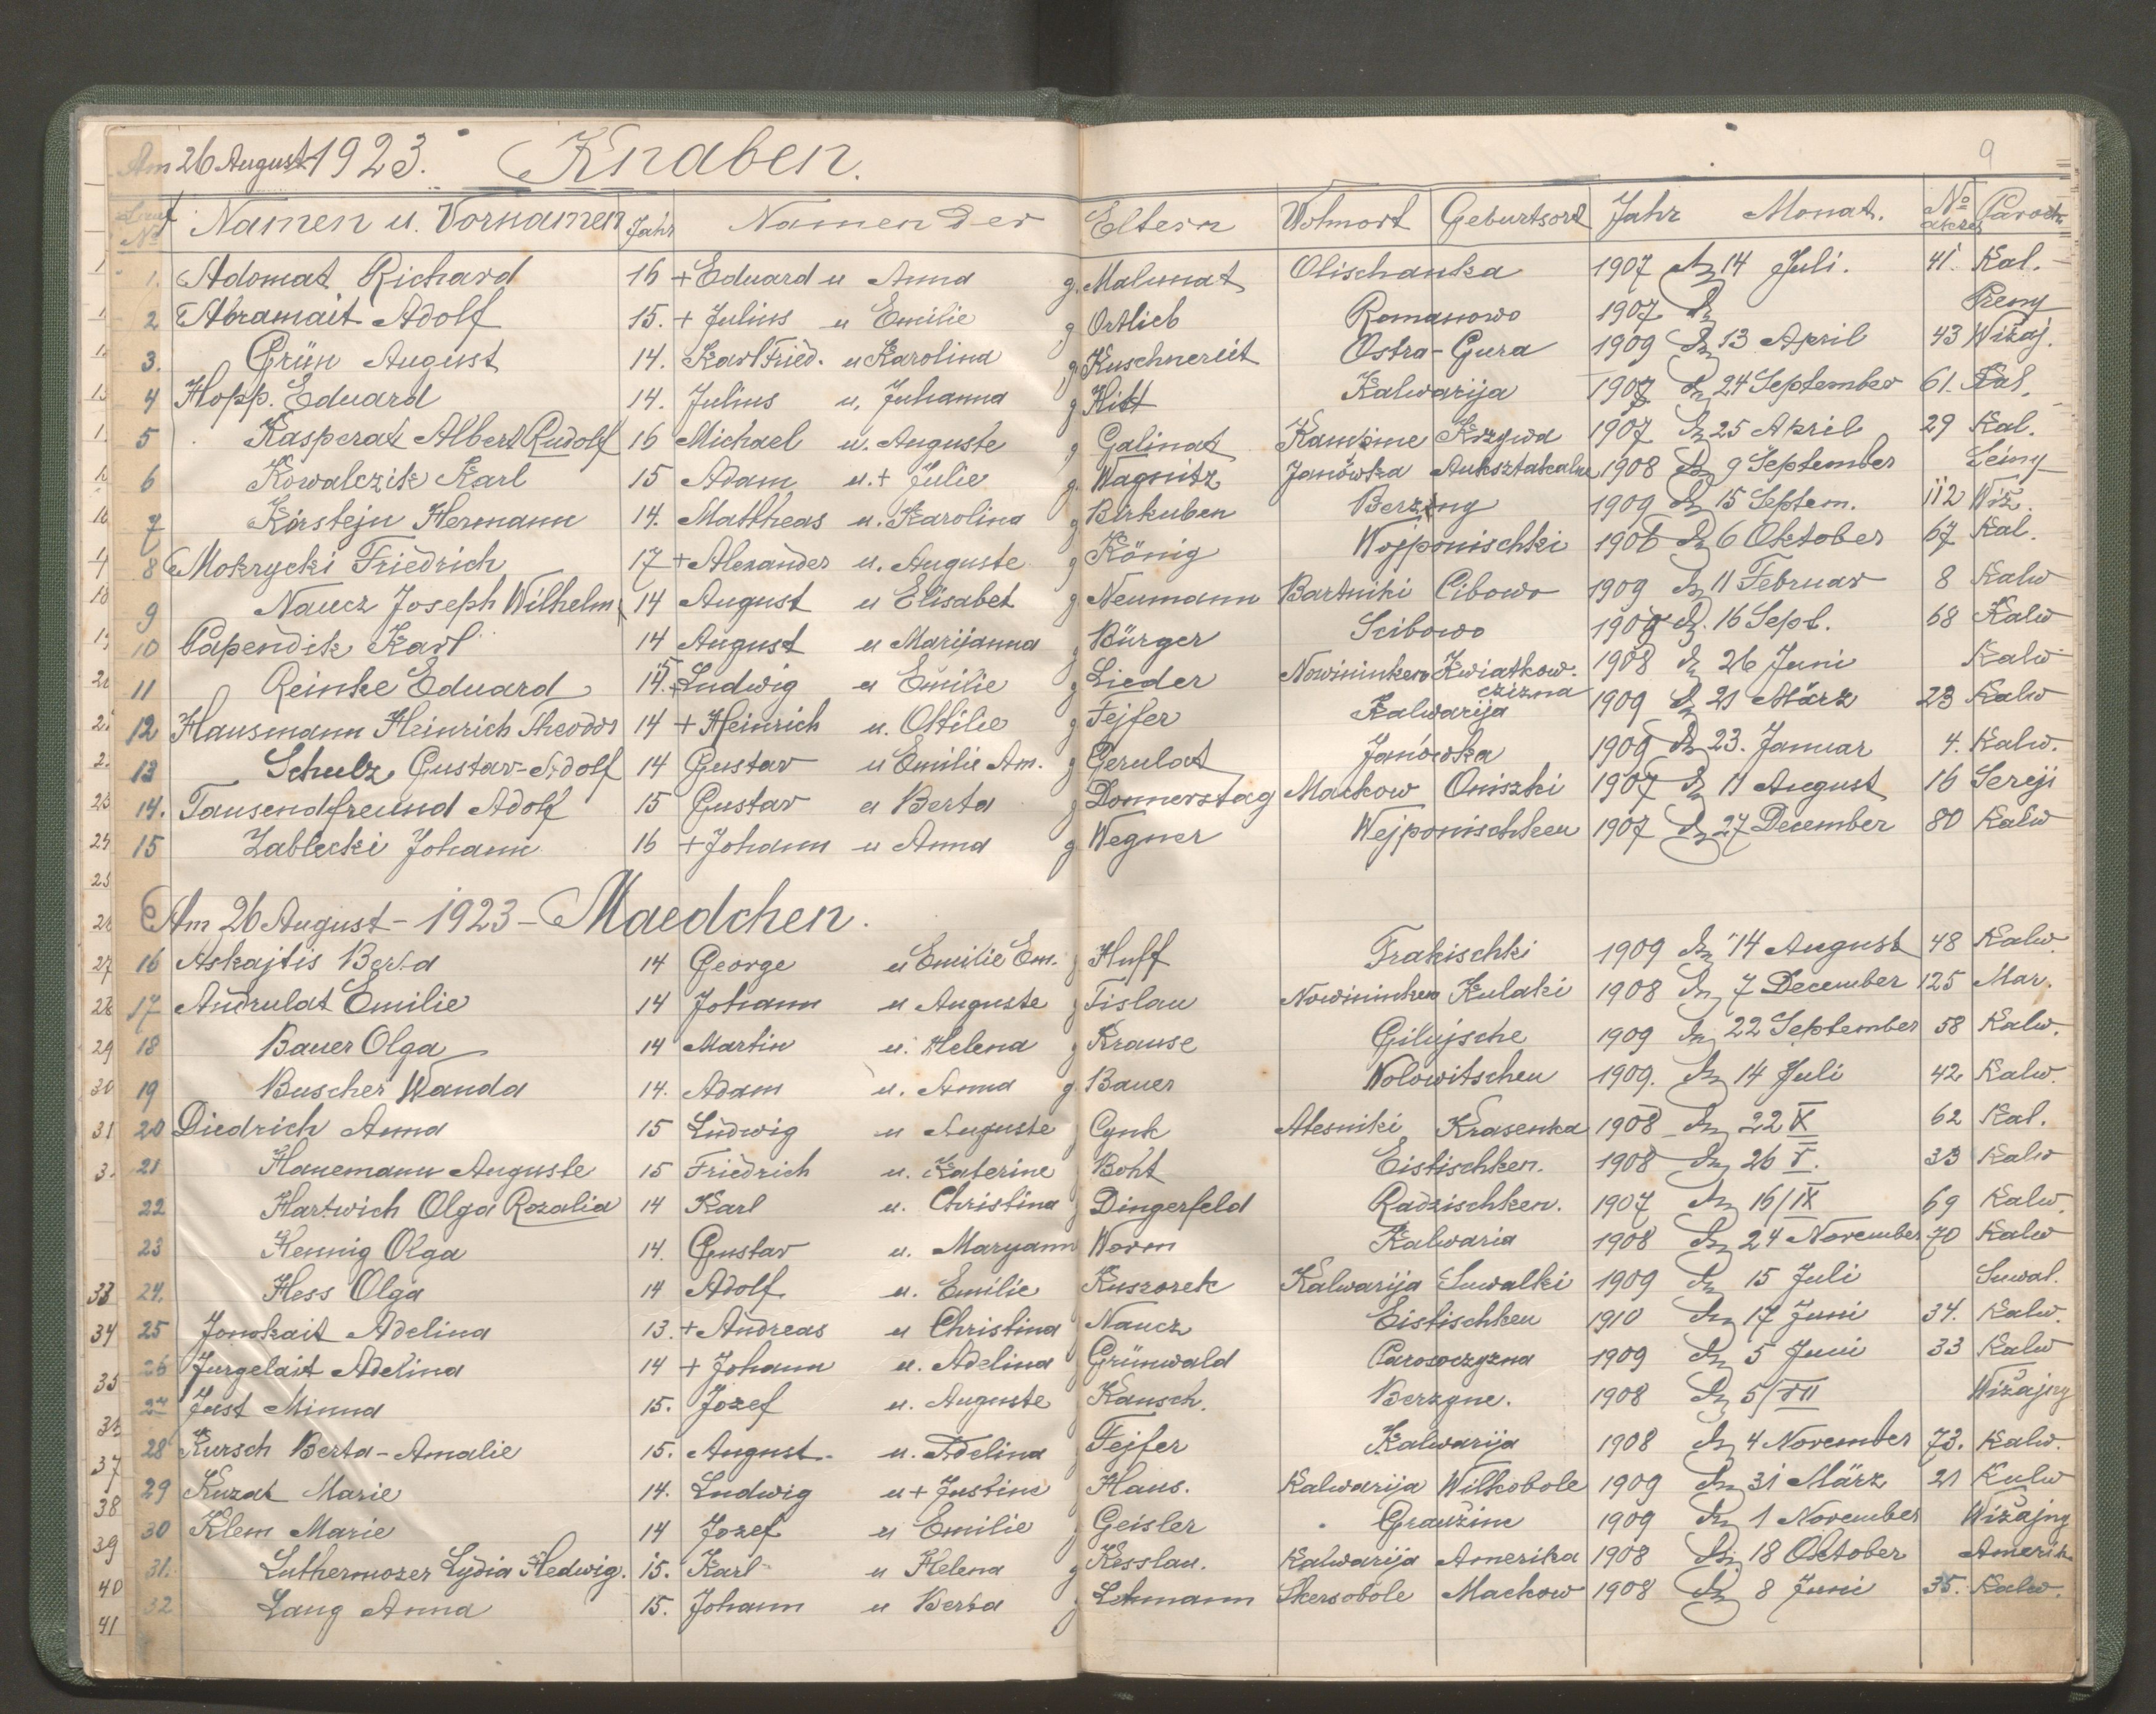 Am 26 August 1923. Knaben.
9
Lauf No Namen u. Vornamen Jahr Namen der Eltern Wohnort Geburtsort Jahr Monat. No Paroch
1. Adomat Richard 16 + Eduard u Anna g. Malwnat Olischanka 1907 d. 14 Juli. 41. Kal.
2 Abramait Adolf 15. + Julius u Emilie g Ortlieb Romanowo 1907 d. Preny
3. Grün August 14. Karl Fried. u Karolina g. Kuschnereit Ostra-Gura 1909 d. 13 April 43 Wižaj.
4 Hopp. Eduard 14. Julius u. Juhanna g Kitt Kalwarija 1907 d. 24 September 61. Kal.
5 Kasperat Albert Rudolf 16 Michael u. Auguste g Galinat Kamsine Krzywa 1907 d. 25 April 29 Kal.
6 Kowalczik Karl 15 Adam u. + Julie g. Wagnitz Janówka Auksztakalne 1908 d. 9 September Leiny
7 Kirstejn Hermann 14. Mattheas u. Karolina g Birkuben Berzyng 1909 d. 15 Septem. 112 Wiž.
8 Mokrycki Friedrich 17 + Alexander u. Auguste g König Wojponischki 1906 d. 6 Oktober 67 Kal.
9 Naucz Joseph Wilhelm 14 August u Elisabet g. Neumann Bartniki Cibowo 1909 d. 11 Februar 8 Kalw
10 Papendik Karl 14 August u Marijanna g Bürger Scibowo 1909 d. 16 Sept. 68 Kalw
11 Reinke Eduard 15 14. + Ludwig u Emilie g Lieder Nowininken Kwiatkowczizna 1908 d. 26 Juni Kalw
12 Hausmann Heinrich Theodor 14 + Heinrich u. Ottilie g Fejfer Kalwarija 1909 d. 21 März 23 Kalw
13 Schulz Gustav-Adolf 14 Gustav u Emilie Am. g Gerulat Janówka 1909 d. 23. Januar 4. Kalw.
14. Tausendfreund Adolf 15 Gustav u Berta g Donnerstag Mackow Oniszki 1907 d. 11 August 16 Sereji
15 Zablecki Johann 16 + Johann u Anna g Wegner Wejponischken 1907 d. 27 December 80 Kalw
Am 26 August - 1923 - Maedchen.
16 Askajtis Berta 14 George u Emilie Em. g Huff Trakischki 1909 d. 14 August 48 Kalw.
17 Andrulat Emilie 14 Johann u Auguste g Tislau Nowininken Kulaki 1908 d. 7 December 125 Mar.
18 Bauer Olga 14 Martin u. Helena g Krause Gilujsche 1909 d. 22 September 58 Kalw.
19 Buscher Wanda 14. Adam u. Anna g Bauer Wolowitschen 1909. d. 14 Juli 42 Kalw.
20 Diedrich Anna 15 Ludwig u Auguste g Cynk Alesniki Krasenka 1908 d. 22 X 62 Kal.
21 Hanemann Auguste 15 Friedrich u. Katerine g Boht Eistischken. 1908 d. 26 V. 33 Kalw
22 Hartwich Olga Rozalia 14 Karl u. Christina g Dingerfeld Radzischken. 1907 d. 16/IX 69 Kalw.
23 Hennig Olga 14. Gustav u. Maryann Worm Kalwaria 1908 d. 24 November 70 Kalw
24. Hess Olga 14 Adolf u. Emilie Kuszorek Kalwarija Suwalki 1909 d. 15 Juli Suwal.
25 Jonokait Adelina 13. + Andreas u Christina g Naucz Eistischken 1910 d. 17 Juni 34. Kalw.
26 Jurgelait Adelina 14 + Johann u. Adelina g Grünwald Parosoczyzna 1909 d. 5 Juni 33 Kalw
27 Just Minna 15. Jozef u. Auguste g Kausch. Berzyne. 1908 d. 5/VII Wižajny
28 Kursch Berta-Amalie 15. August. u. Adelina g Fejfer Kalwarija 1908 d. 4 November 73. Kalw.
29 Kuzat Marie 14. Ludwig u + Justine g Haus. Kalwarija Wilkobole 1909 d. 31 März 21 Kalw
30 Klem Marie 14 Jozef u Emilie g Geisler Graužine 1909 d. 1 November Wižajny
31. Luthermozer Lydia Hedwig. 15. Karl u Helena g Kesslau. Kalwarija Amerika 1908 d. 18 Oktober Amerik
32 Lang Anna 15. Johann u Berta g Lehmann Skersobole Mackow 1908 d. 8 Juni 35. Kalw.